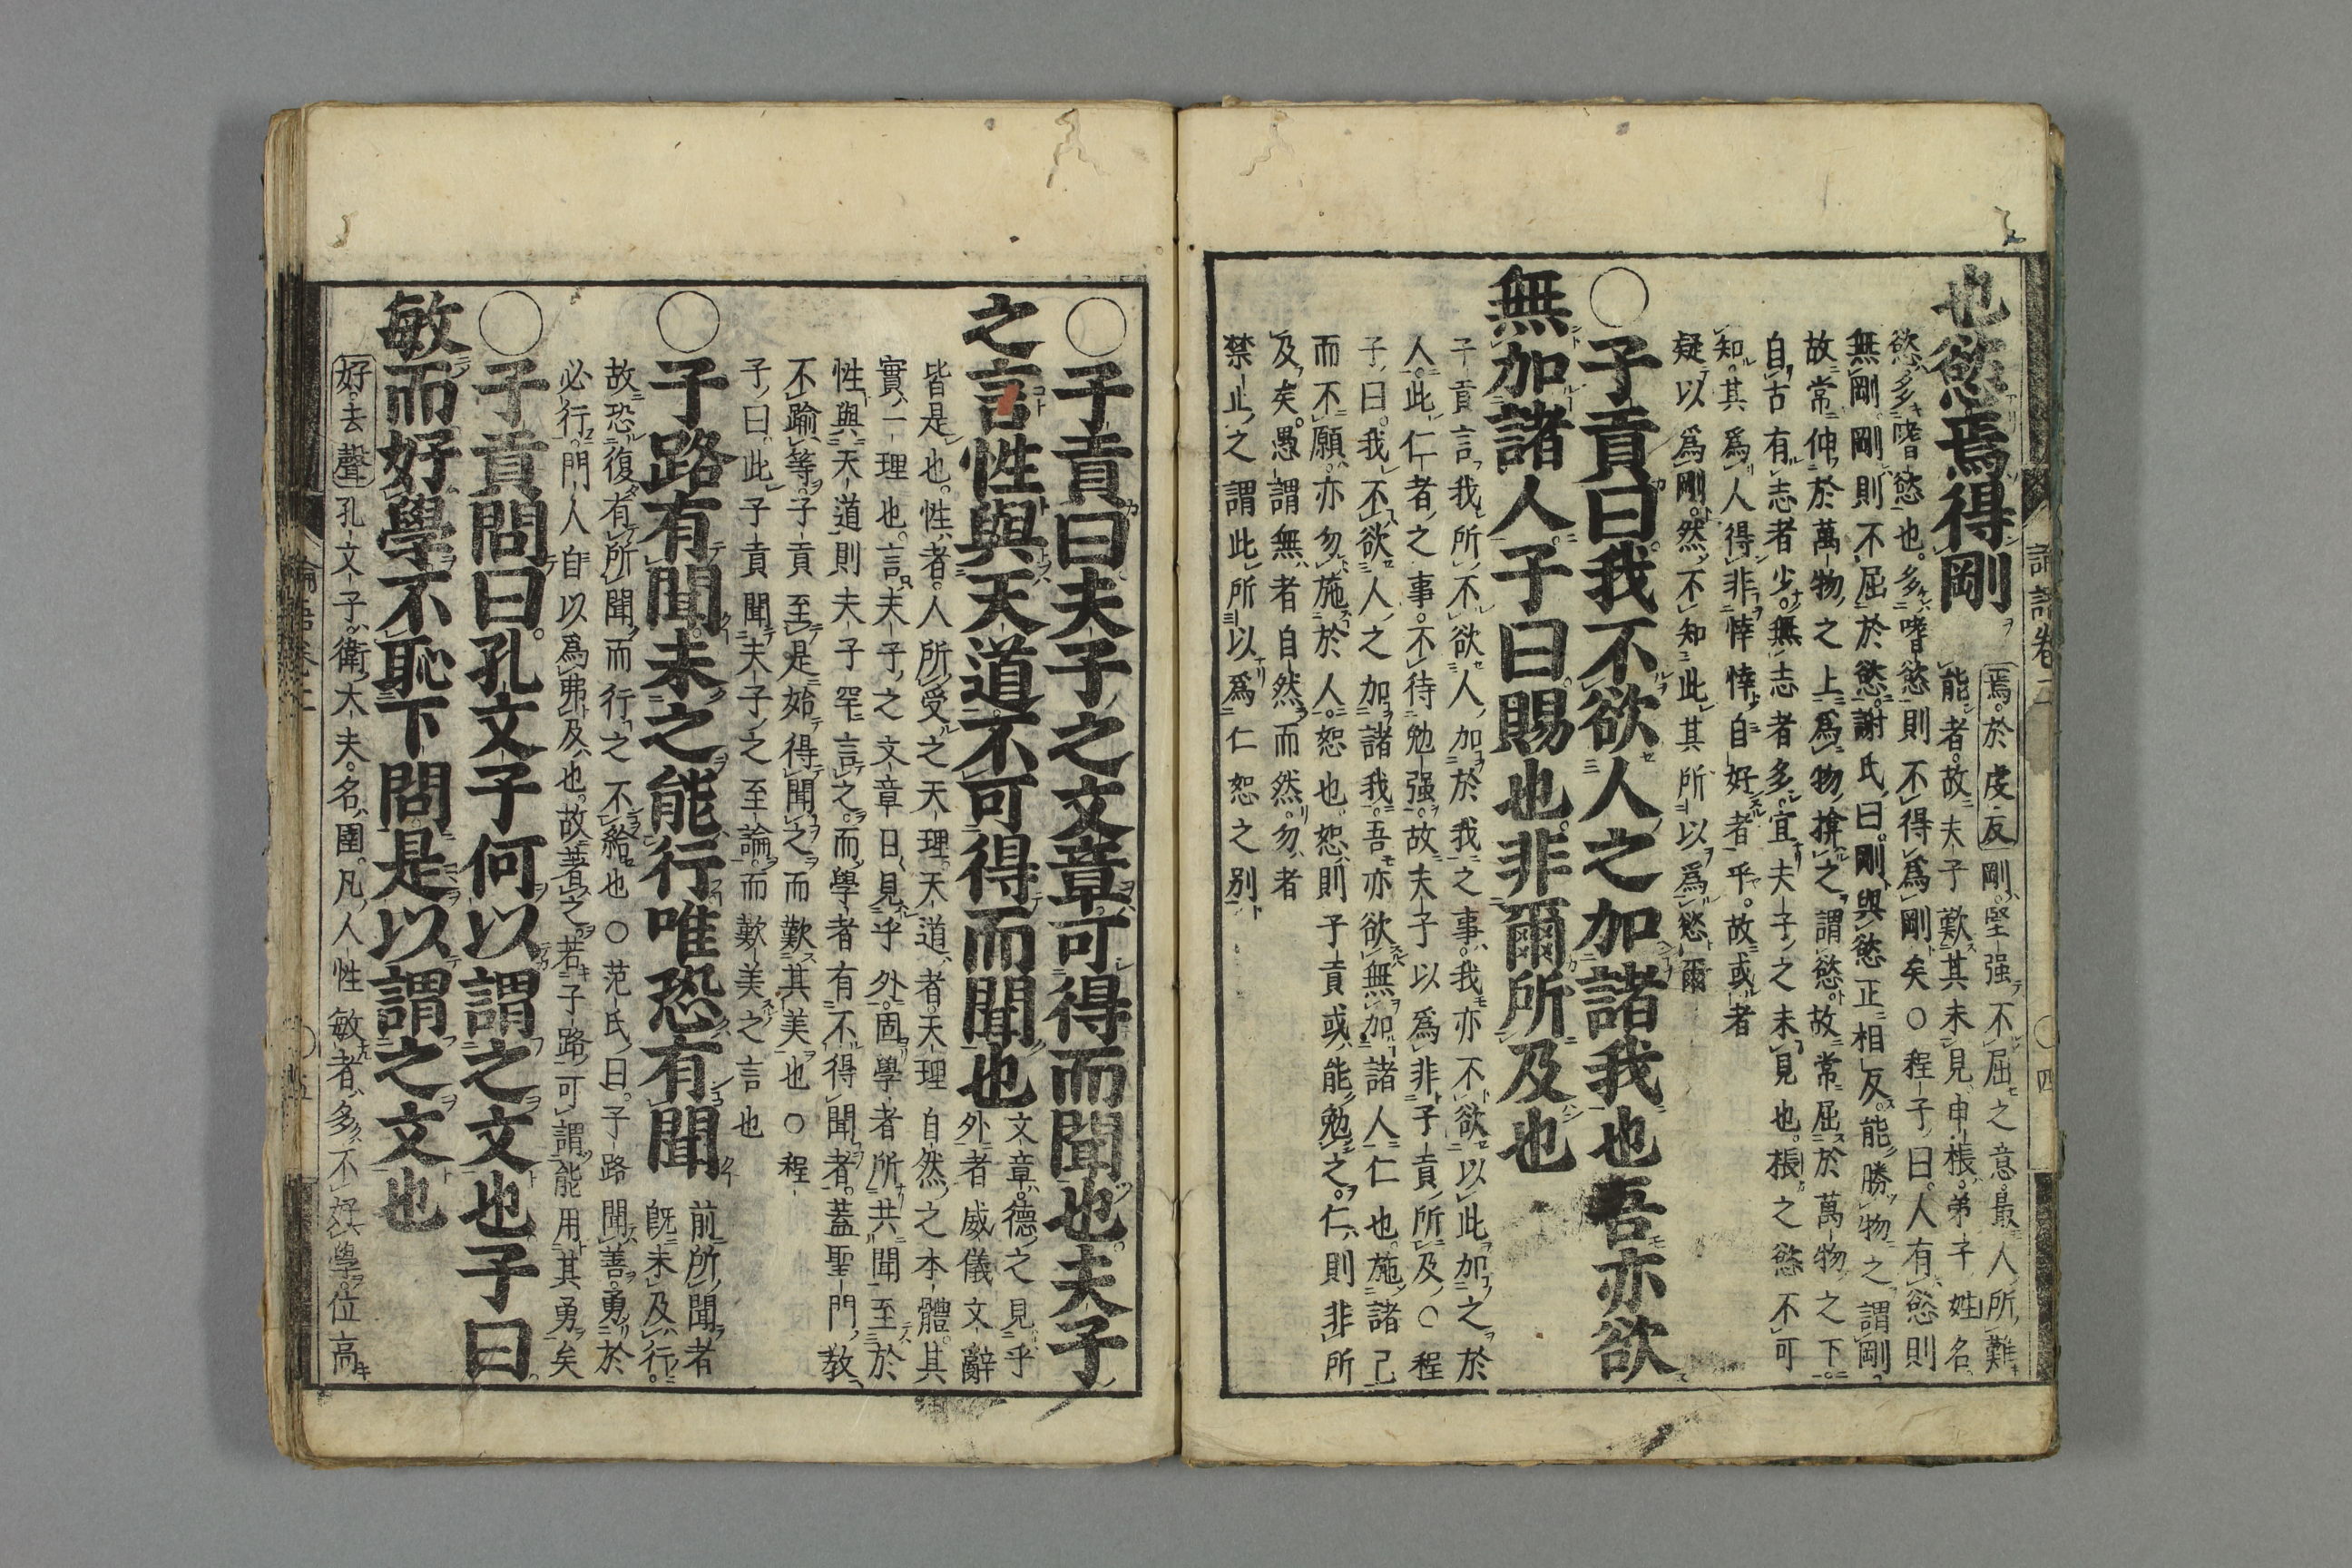 論語卷二
四
也慾焉得剛
焉於虔反剛堅强不屈之意最人所難
能者故夫子歎其未見申棖弟子姓名
慾多嗜慾也多嗜慾則不得爲剛矣○程子曰人有慾則
無剛剛則不屈於慾謝氏曰剛與慾正相反能勝物之謂剛
故常伸於萬物之上爲物揜之謂慾故常屈於萬物之下
自古有志者少無志者多宜夫子之未見也棖之慾不可
知其爲人得非悻悻自好者乎故或者
疑以爲剛然不知此其所以爲慾爾
○子貢曰我不欲人之加諸我也吾亦欲
無加諸人子曰賜也非爾所及也
子貢言我所不欲人加於我之事我亦不欲以此加之於
人此仁者之事不待勉强故夫子以爲非子貢所及○程
子曰我不欲人之加諸我吾亦欲無加諸人仁也施諸己
而不願亦勿施於人恕也恕則子貢或能勉之仁則非所
及矣愚謂無者自然而然勿者
禁止之謂此所以爲仁恕之別
○子貢曰夫子之文章可得而聞也夫子
之言性與天道不可得而聞也
文章德之見乎
外者威儀文辭
皆是也性者人所受之天理天道者天理自然之本體其
實一理也言夫子之文章日見乎外固學者所共聞至於
性與天道則夫子罕言之而學者有不得聞者蓋聖門敎
不踰等子貢至是始得聞之而歎其美也○程
子曰此子貢聞夫子之至論而歎美之言也
○子路有聞未之能行唯恐有聞
前所聞者
旣未及行
故恐復有所聞而行之不給也○范氏曰子路聞善勇於
必行門人自以爲弗及也故著之若子路可謂能用其勇矣
○子貢問曰孔文子何以謂之文也子曰
敏而好學不恥下問是以謂之文也
好去聲孔文子衛大夫名圉凡人性敏者多不好學位高
論語卷二
五